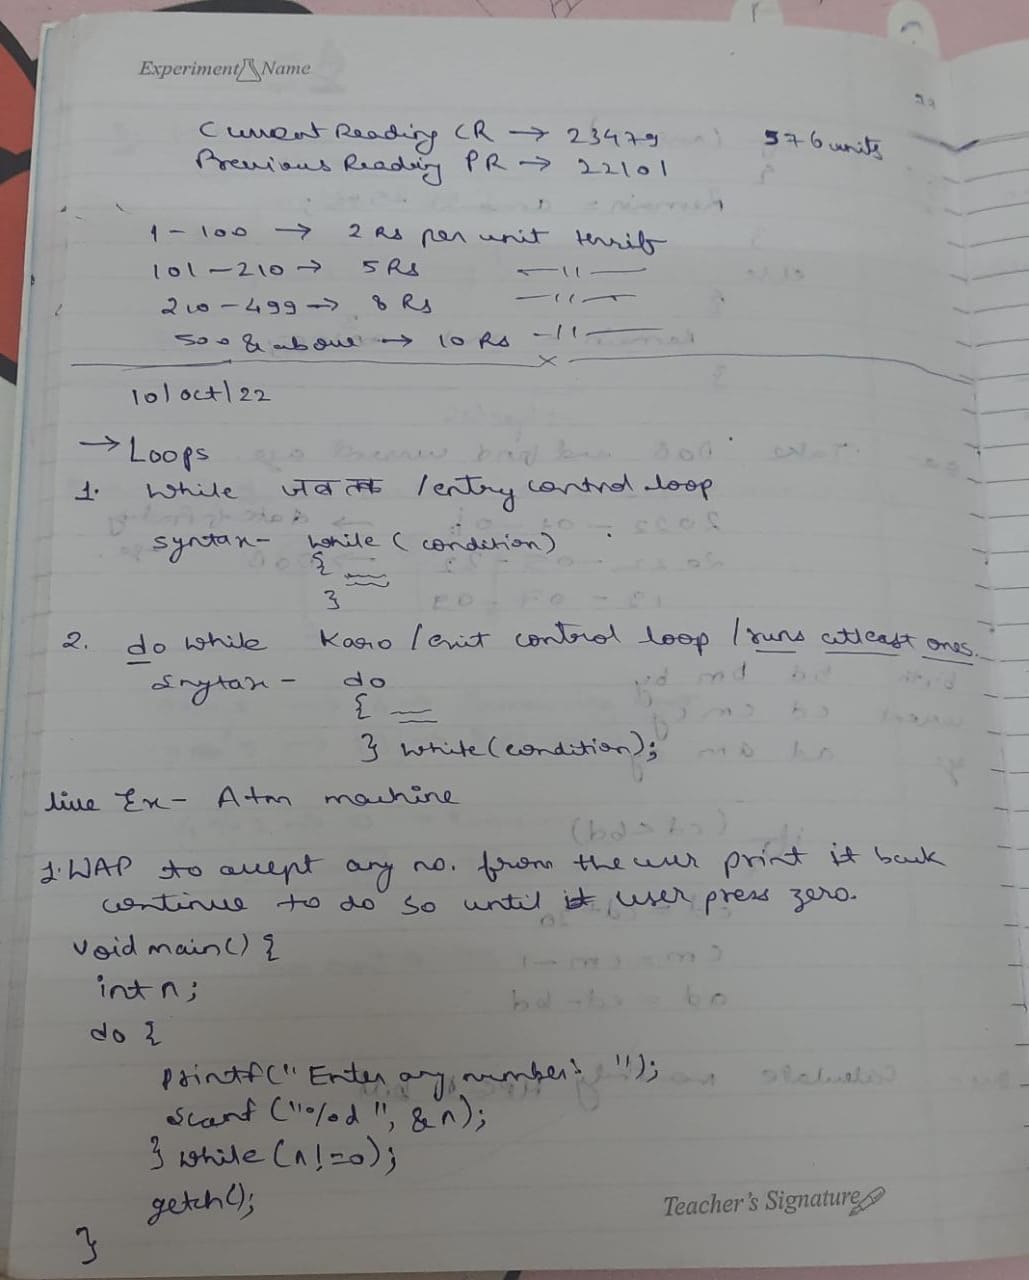 Experiment Name
Current Reading CR → 23479 576 units
Previous Reading PR → 22101
1 - 100 → 2 Rs per unit terrif
101 - 210 → 5 Rs —11—
210 - 499 → 8 Rs —11—
500 & above → 10 Rs —11—
x
10/oct/22
→ Loops
1. While जब तक /entry control loop
syntax- while (condition)
{
}
2. do while Karo /exit control loop /runs atleast ones.
Snytax - do
{
} while (condition);
live Ex- Atm machine
1. WAP to accept any no. from the user print it back
continue to do so until user press zero.
void main() {
int n;
do {
printf(" Enter any number: ");
scanf ("%d", &n);
} while (n!=0);
getch();
}
Teacher's Signature